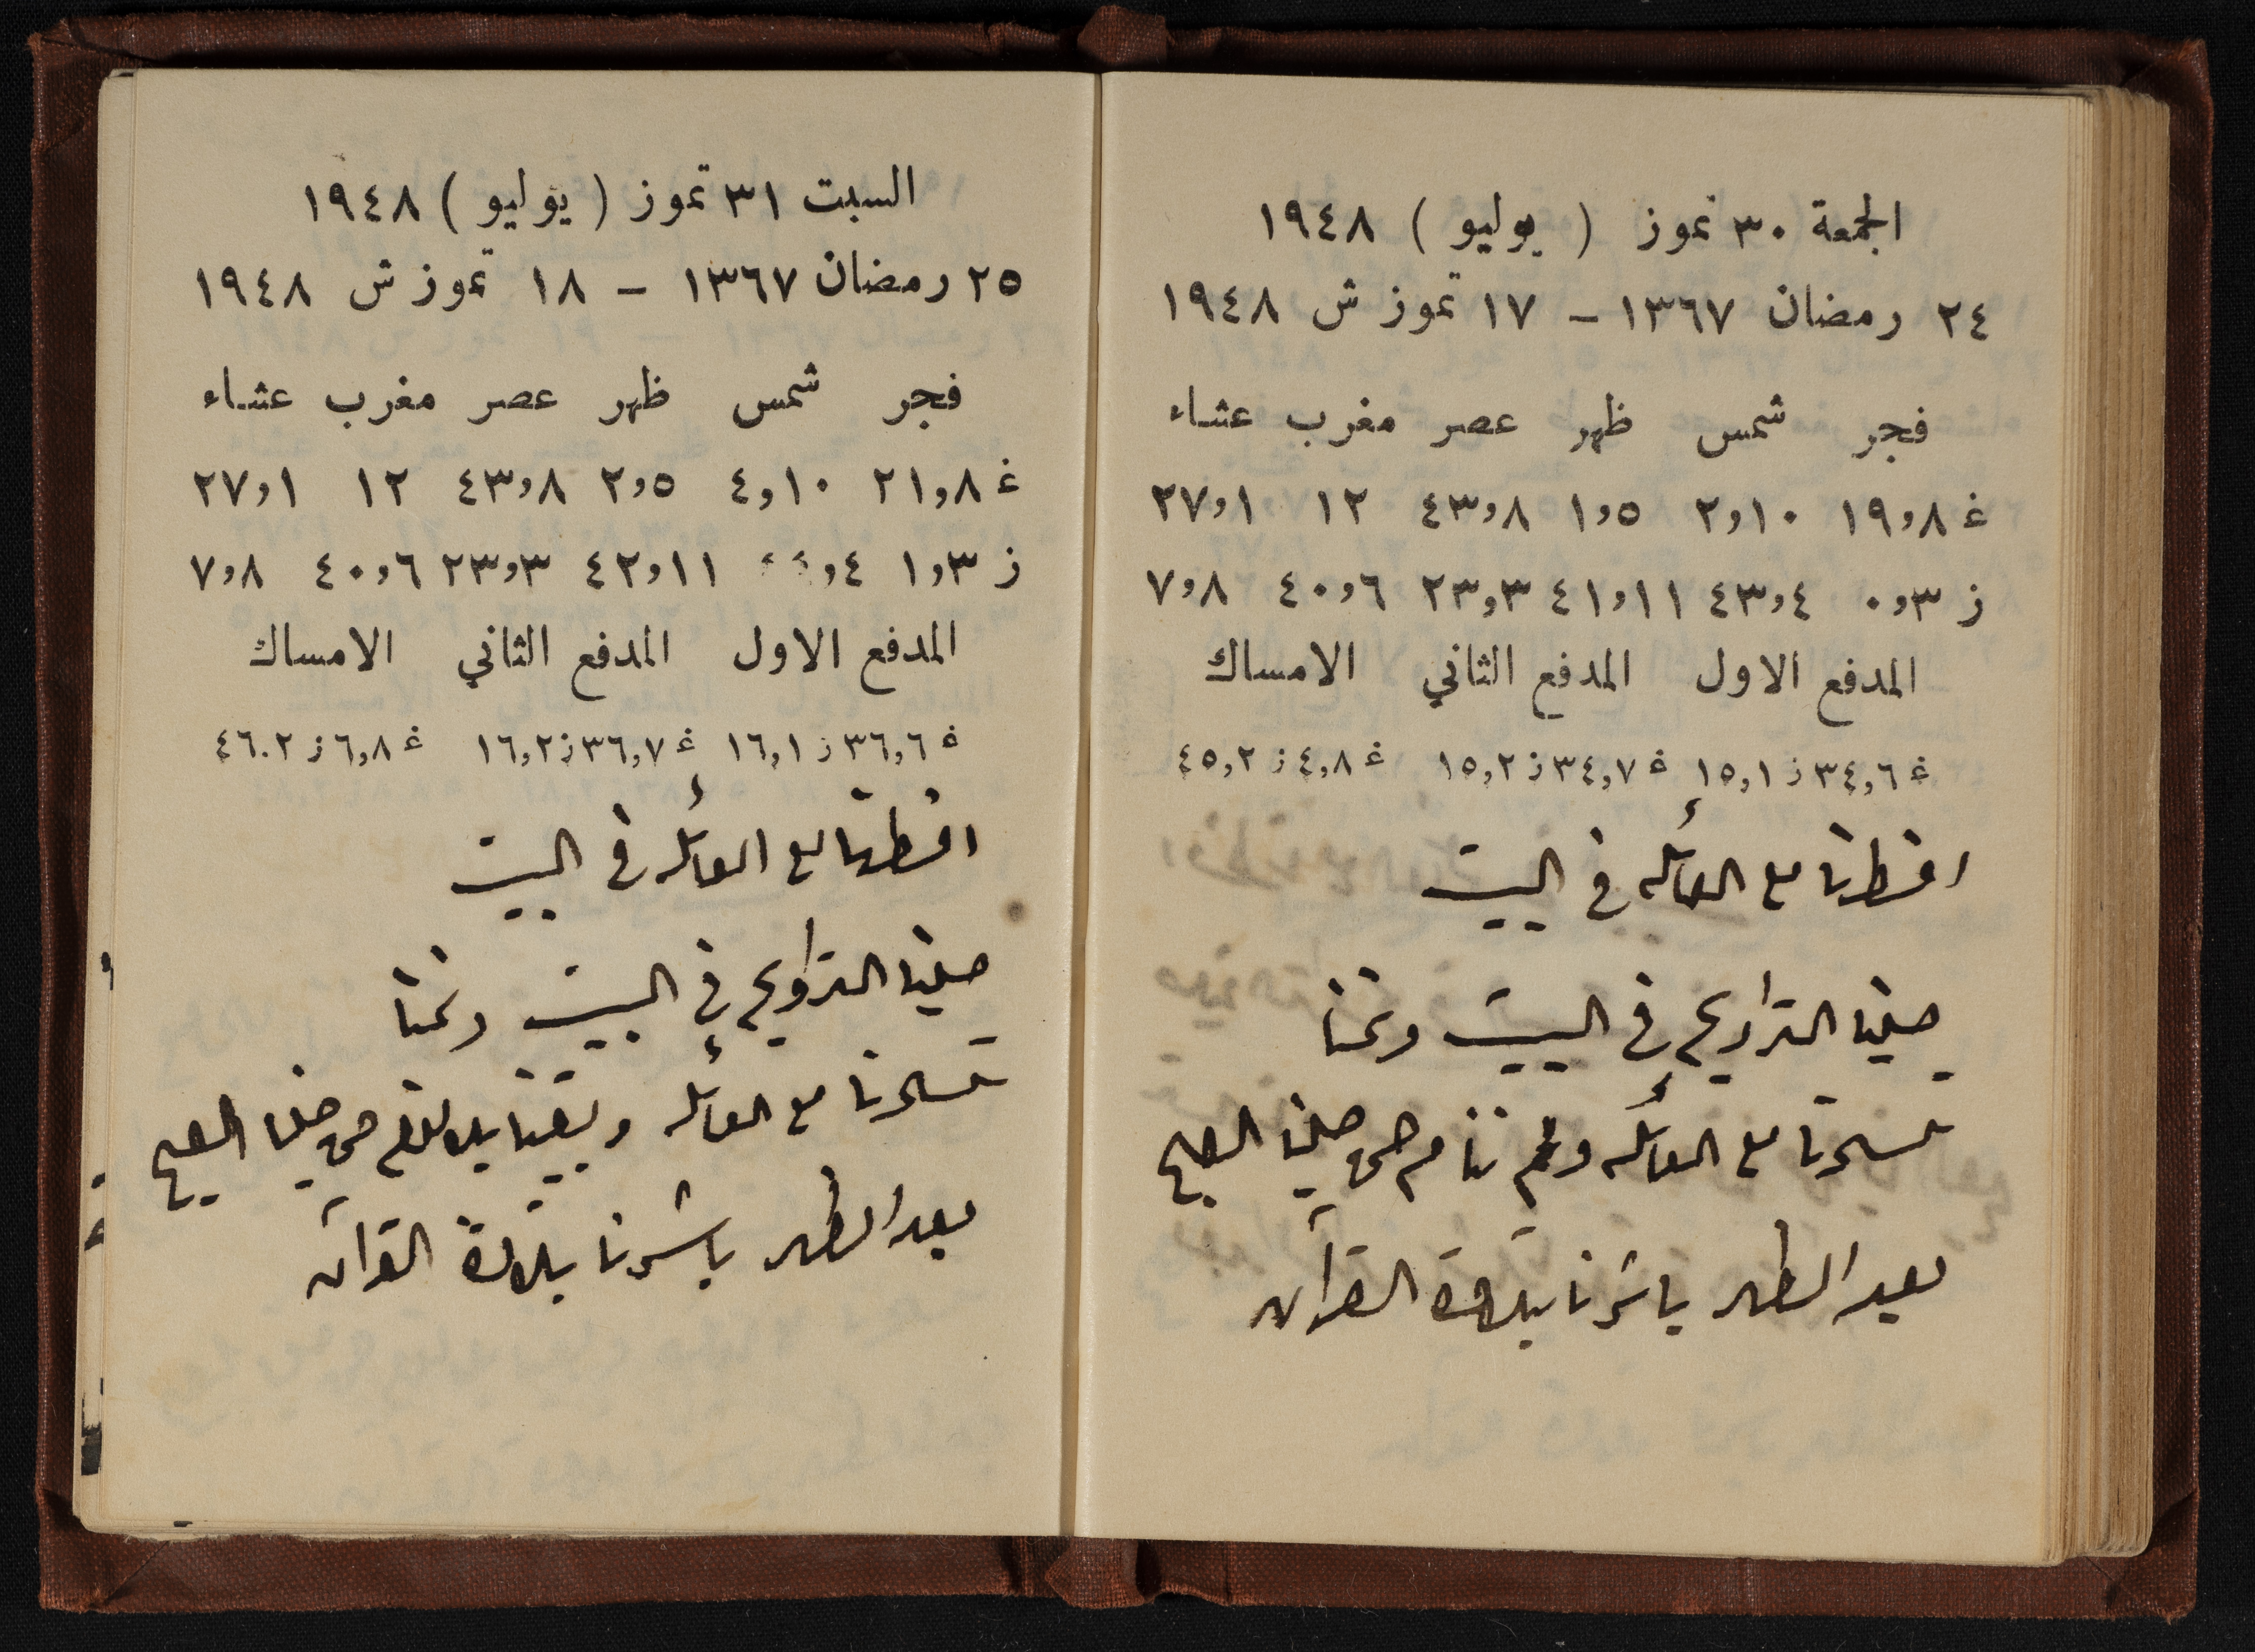 الجمعة ٣٠ تموز ( يوليو ) ١٩٤٨
٢٤ رمضان ١٣٦٧ – ١٧ تموز ش ١٩٤٨
فجر شمس ظهر عصر مغرب عشاء
غ ١٩,٨ ٢,١٠ ١,٥ ٤٣,٨ ١٢ ٢٧,١
ز ٠,٣ ٤٣,٤ ٤١,١١ ٢٣,٣ ٤٠,٦ ٧,٨
المدفع الاول المدفع الثاني الامساك
غ ٣٤,٦ ز ١٥,١ غ ٣٤,٧ ز ١٥,٢ غ ٤,٨ ز ٤٥,٢
افطرنا مع العائلة في البيت
صلينا التراويح في البيت ونمنا
تسحرنا مع العائلة ولم ننام حتى صلينا الصبح
بعد الظهر باشرنا بتلاوة القرآن
السبت ٣١ تموز ( يوليو ) ١٩٤٨
٢٥ رمضان ١٣٦٧ – ١٨ تموز ش ١٩٤٨
فجر شمس ظهر عصر مغرب عشاء
غ ٢١,٨ ٤,١٠ ٢,٥ ٤٣,٨ ١٢ ٢٧,١
ز ١,٣ ٤٤,٤ ٤٢,١١ ٢٣,٣ ٤٠,٦ ٧,٨
المدفع الاول المدفع الثاني الامساك
غ ٣٦,٦ ز ١٦,١ غ ٣٦,٧ ز ١٦,٢ غ ٦,٨ ز ٤٦.٢
افطرنا مع العائلة في البيت
صلينا التراويح في البيت ونمنا
تسحرنا مع العائلة وبقينا بلا نوم حتى صلينا الصبح
بعد الظهر باشرنا بتلاوة القرآن